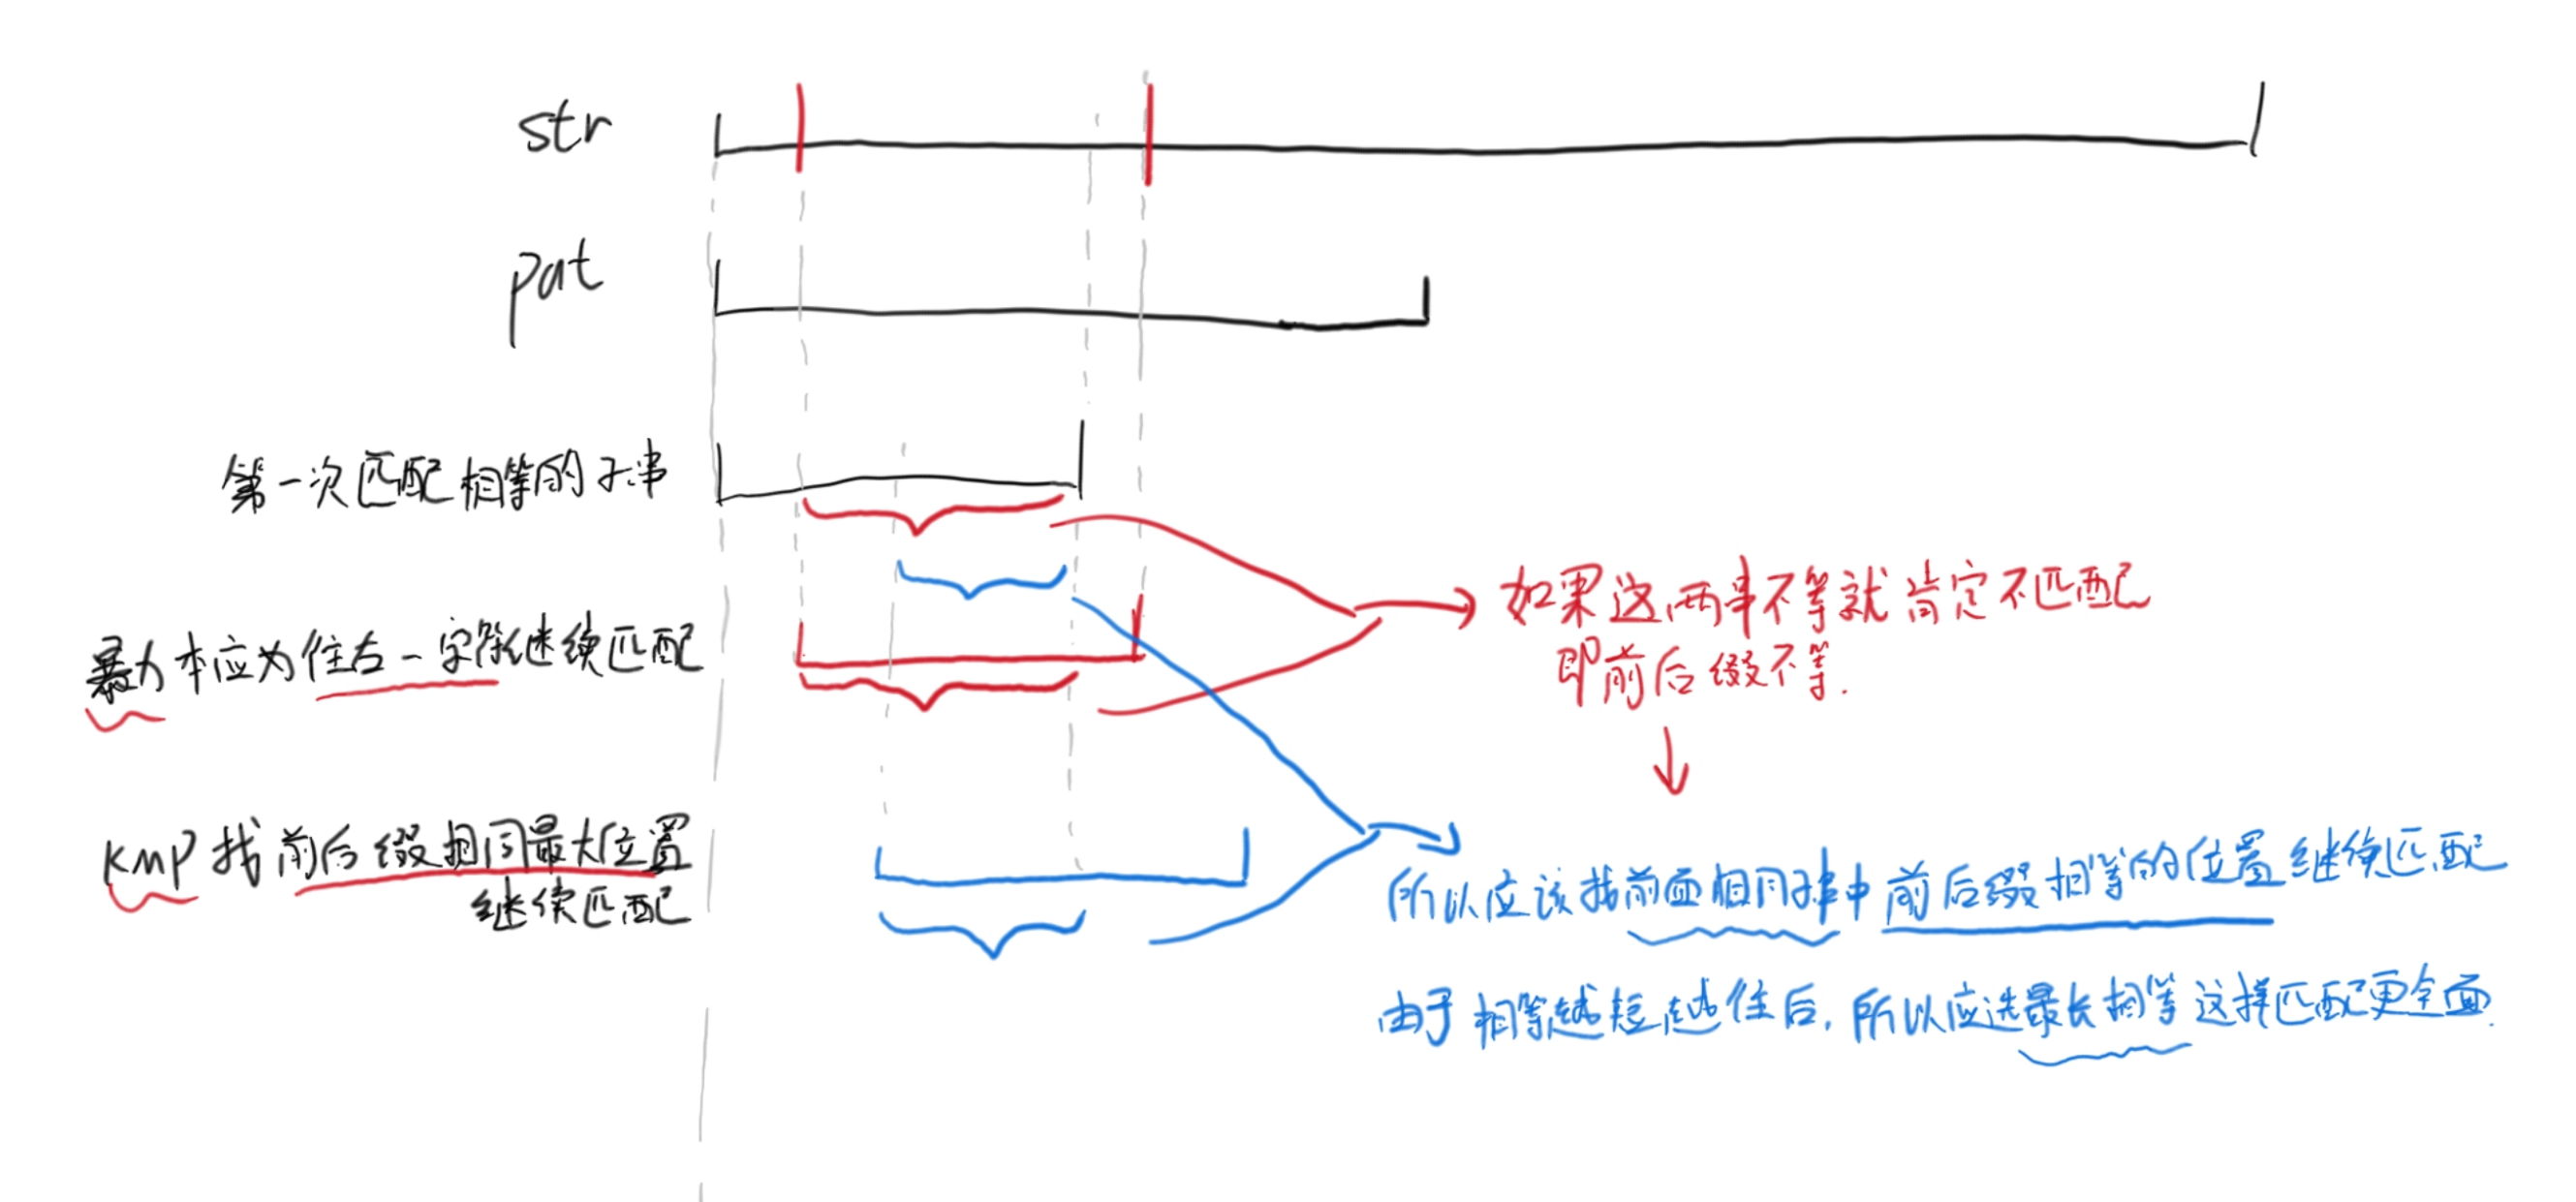 str
pat
第一次匹配相等的子串
暴力本应为往右一字符继续匹配
kmp 找前后缀相同最大位置
继续匹配
如果这两串不等就肯定不匹配
即前后缀不等.
所以应该找前面相同子串中前后缀相等的位置继续匹配
由于相等越短越往后,所以应选最长相等这样匹配更全面.